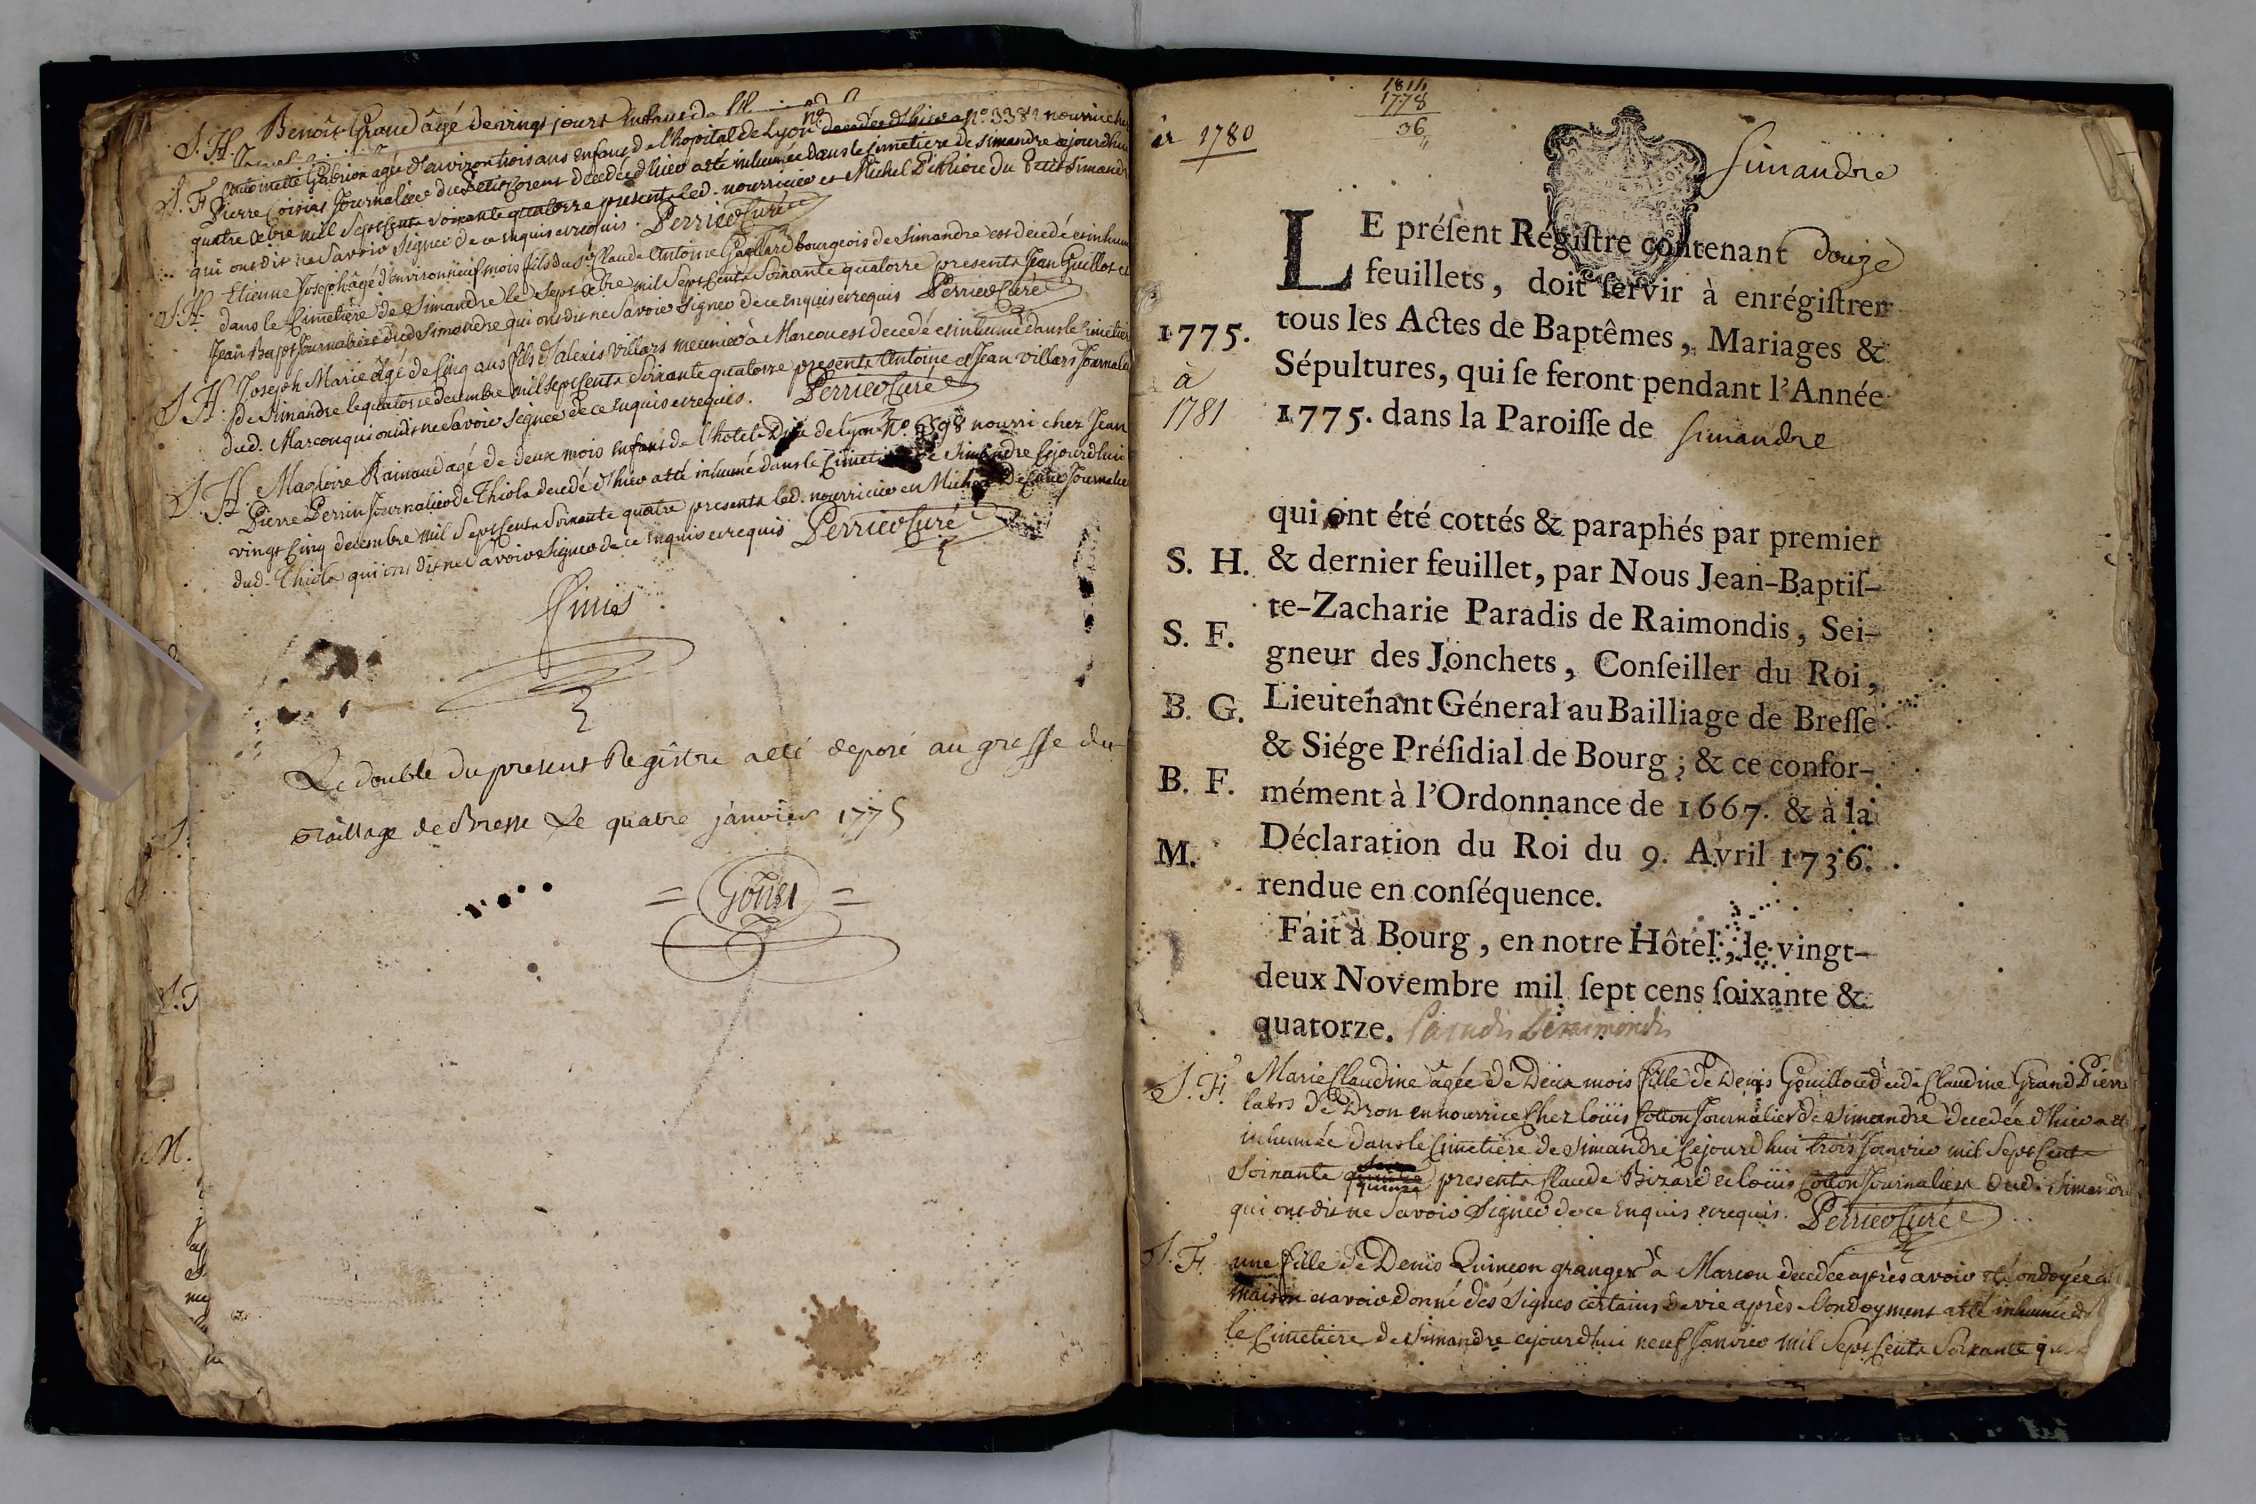 S. H. Benoît Graud âgé de vingt jours
n° 3382 nourri chez
S. F. Antoinette Gabrion agée d'environ trois ans enfant de l'hopital de Lyon
Pierre Journalier du Petit Corent decedée d'hier a été inhumée dans le Cimetiere de Simandre cejourdhui
quatre xbre mil sept cents soixante quatorze presents led. nourricier et Michel du Petit Simandre
qui ont dit ne savoir signer de ce enquis et requis. Perrier Curé
S. H. Etienne Joseph âgé d'environ neuf mois fils du Sr Claude Antoine bourgeois de Simandre est decedé et inhumé
dans le Cimetière de Simandre le sept xbre mil sept cents soixante quatorze presents Jean Guillot et
Jean Bapt Journaliers dud Simandre qui ont dit ne savoir signer de ce enquis et requis Perrier Curé
S. H. Joseph Marie âgé de cinq ans fils d'alexis Villars meunier à Marcou est decedé et inhumé dans le Cimetiere
de Simandre le quatorze decembre mil sept cents soixante quatorze presents Antoine et Jean Villars Journaliers
dud. Marcou qui ont dit ne savoir signer de ce enquis et requis. Perrier Curé
S. H. Magloire Rainaud agé de deux mois enfant de l'hotel Dieu de Lyon n° nourri chez Jean
Pierre Perrin Journalier de Thiole decedé d'hier a été inhumé dans le Cimetiere de Simandre cejourdhui
vingt cinq decembre mil sept cents soixante quatre presents led. nourricier et Journalier
dud. Thiole qui ont dit ne savoir signer de ce enquis et requis Perrier Curé
finis
Le double du present Registre a été deposé au greffe du
Baillage de Bresse Le quatre janvier 1775
1814
1778
36
1780
Simandre
LE préſent Régiſtre contenant douze
feuillets, doit ſervir à enrégiſtrer
tous les Actes de Baptêmes, Mariages &
1775.
Sépultures, qui ſe feront pendant l'Année
à
1781
1775. dans la Paroiſſe de Simandre
qui ont été cottés & paraphés par premier
S. H. & dernier feuillet, par Nous Jean-Baptiſ-
te-Zacharie Paradis de Raimondis, Sei-
S. F. gneur des Jonchets, Conſeiller du Roi,
B. G. Lieutenant Géneral au Bailliage de Breſſe
& Siége Préſidial de Bourg ; & ce confor-
B. F. mément à l'Ordonnance de 1667. & à la
M. Déclaration du Roi du 9. Avril 1736.
rendue en conſéquence.
Fait à Bourg, en notre Hôtel, le vingt-
deux Novembre mil ſept cens ſoixante &
quatorze. Paradis Deraimondis
S. F. Marie Claudine âgée de Deux mois fille de Denis et de Claudine Grand Pierre
labrs de Dron en nourrice chez loüis Cotton Journalier de Simandre decedée d'hier a été
inhumée dans le Cimetiere de Simandre cejourd'hui trois Janvier mil sept Cent
soixante quinze presents Claude Bizard et loüis Cotton Journaliers dud. Simandre
qui ont dit ne savoir signer de ce enquis et requis. Perrier Curé
S. F. une fille de Denis Quinson granger à Marcou decedée après avoir été ondoyée à la
maison et avoir donné des signes certains de vie après l'ondoyment a été inhumée dans
le Cimetiere de Simandre cejourd'hui neuf Janvier mil sept Cents soixante